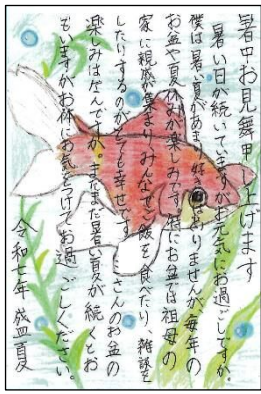 暑中お見舞申し上げます
暑い日が続いていますがお元気にお過ごしですか。
僕は暑い夏があまり好きではありませんが、毎年の
お盆や夏休みが楽しみです。特にお盆では祖母の
家に親戚が集まり、みんなでご飯を食べたり、雑談を
したりするのがとても幸せです。 さんのお盆の
楽しみはなんですか。まだまだ暑い夏が続くとお
もいますがお体にお気をつけてお過ごしください。
令和七年 盛夏